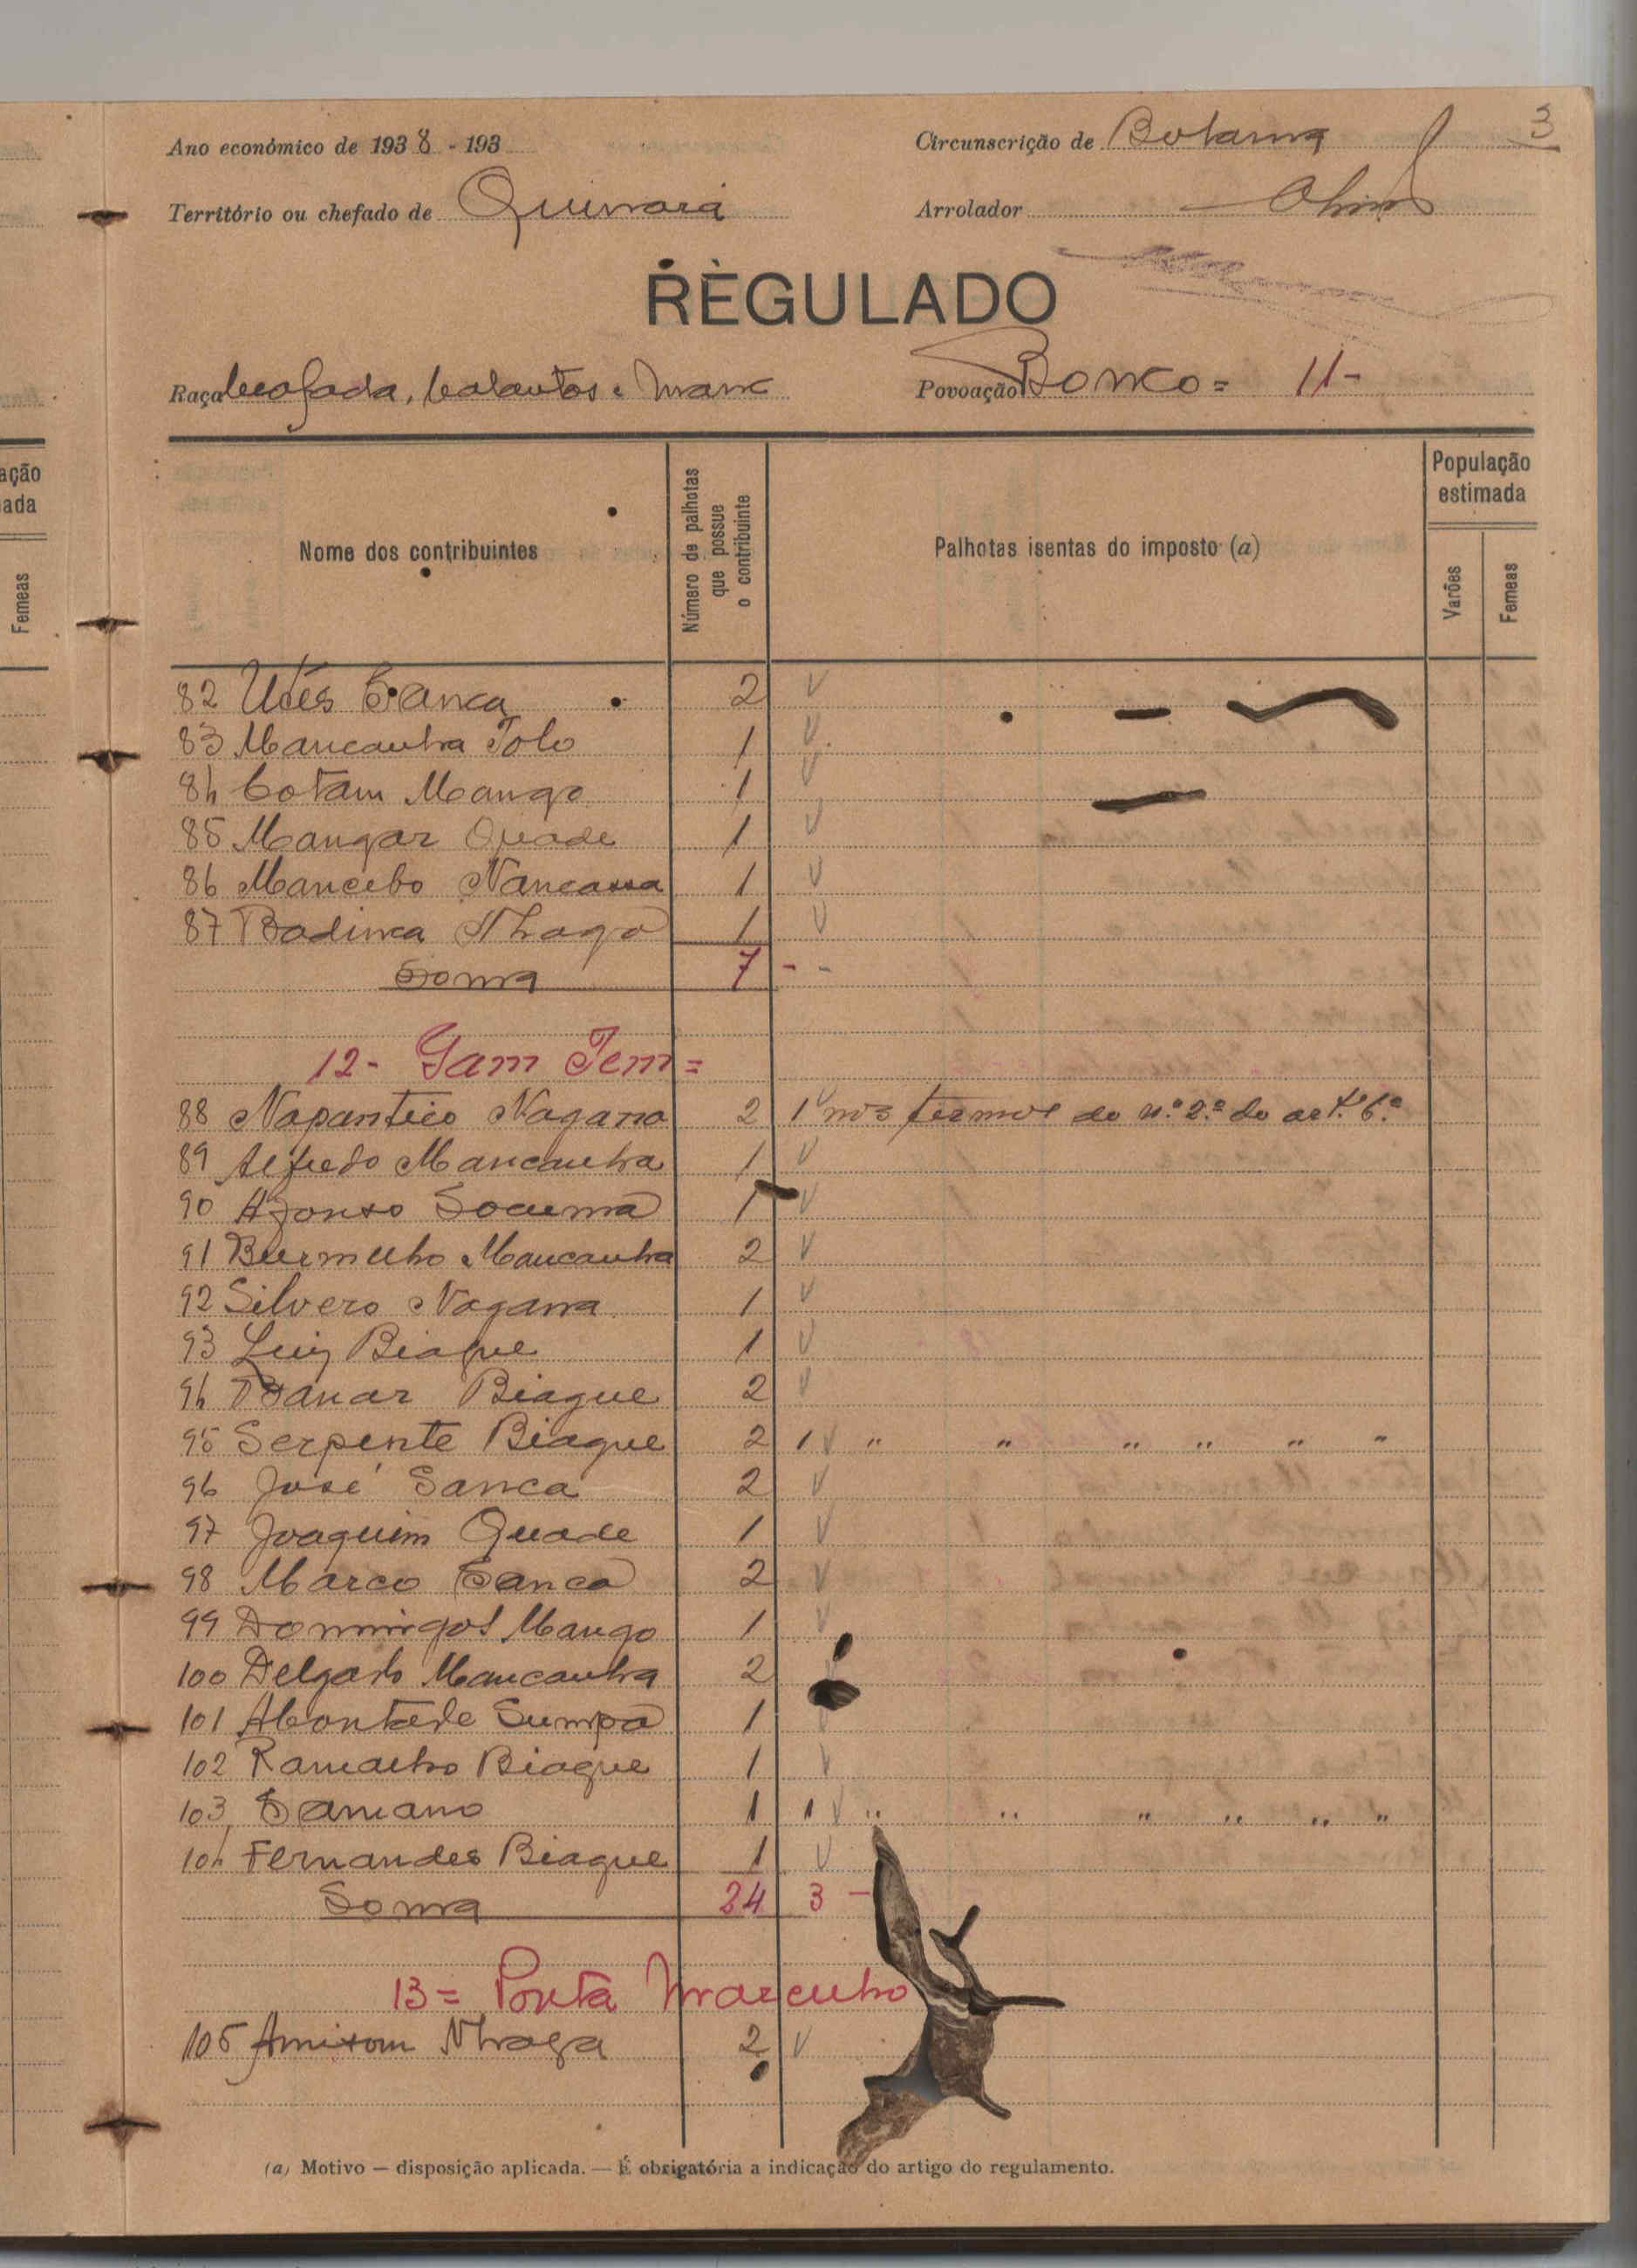 3
Ano económico de 1938 - 193
Circunscrição de Bolama
Território ou chefado de Quinara
Arrolador
REGULADO
Raça beafada, balantas e manc
Povoação Bonco = 11-
ação
ada
Femeas
Nome dos contribuintes
Número de palhotas que possue o contribuinte
Palhotas isentas do imposto (a)
População estimada
Varões
Femeas
82 Sanca 2
83 Mancanha Tolo 1
84 Cotam Mango 1
85 Mangar Quade 1
86 Mancebo Nancassa 1
87 Badinca Nhaga 1
Soma 7 - -
12- Gam Tem =
88 Napantico Nagana 2 1 nos termos do n.º 2.º do art.º 6.º
89 Alfredo Mancanha 1
90 Afonso Socumá 1
91 Burmelho Mancanha 2
92 Silvero Nagana 1
93 Luiz Biague 1
94 Banar Biague 2
95 Serpente Biague 2 1 " " " " " "
96 José Sanca 2
97 Joaquim Quade 1
98 Marco Sanca 2
99 Domingos Mango 1
100 Delgado Mancanha 2
101 Abontade Sumpa 1
102 Ramalho Biague 1
103 Samano 1 1 " " " " " "
104 Fernandes Biague 1
Soma 24 3 -
13 = Ponta Marculho
105 Amisom Nhaga 2
(a) Motivo — disposição aplicada. — É obrigatória a indicação do artigo do regulamento.